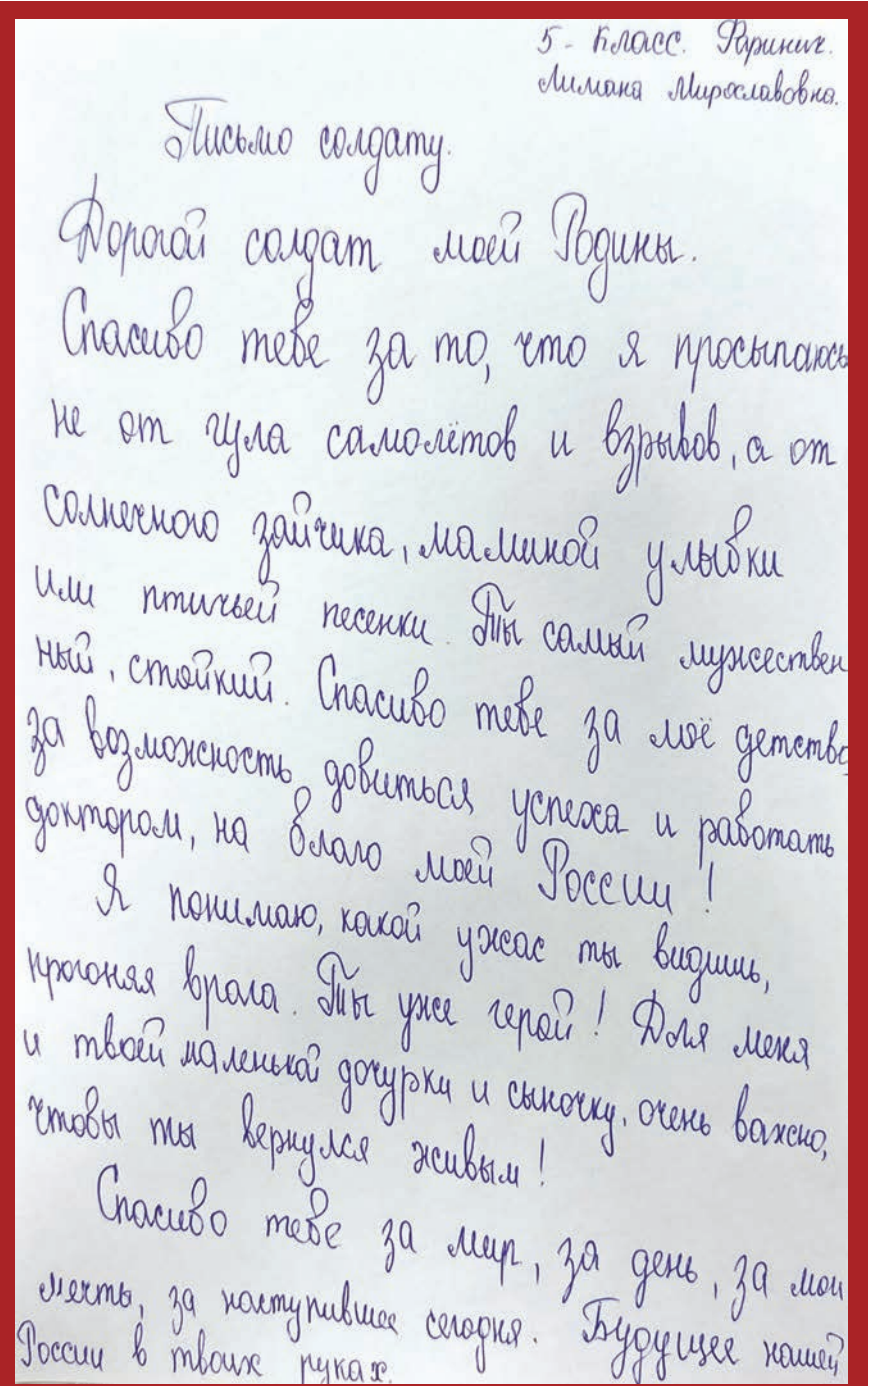 5 - Класс. Фаринич.
Лилиана Мирославовна.
Письмо солдату.
Дорогой солдат моей Родины.
Спасибо тебе за то, что я просыпаюсь
не от гула самолётов и взрывов, а от
солнечного зайчика, маминой улыбки
или птичьей песенки. Ты самый мужествен
ный, стойкий. Спасибо тебе за моё детство,
за возможность добиться успеха и работать
доктором, на благо моей России!
Я понимаю, какой ужас ты видишь,
прогоняя врага. Ты уже герой! Для меня
и твоей маленькой дочурки и сыночку, очень важно,
чтобы ты вернулся живым!
Спасибо тебе за мир, за день, за мои
мечты, за наступившее сегодня. Будущее нашей
России в твоих руках.